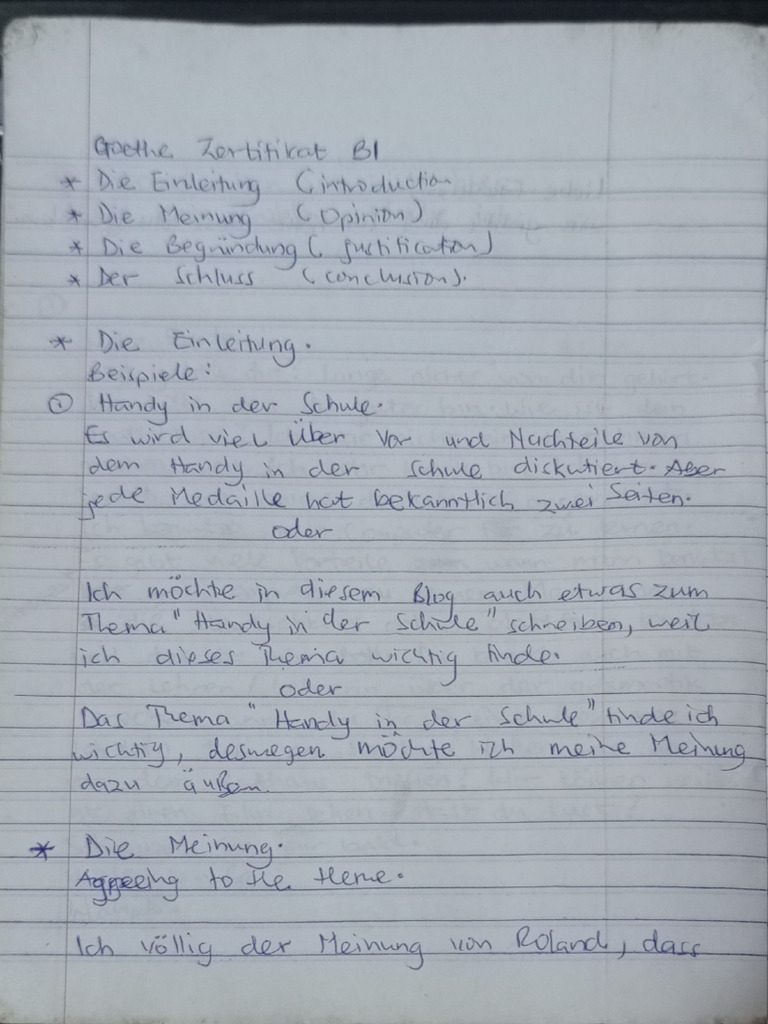 Goethe Zertifikat B1
* Die Einleitung (introduction
* Die Meinung (Opinion)
* Die Begründung (justification)
* Der Schluss (conclusion).
* Die Einleitung.
Beispiele:
① Handy in der Schule.
Es wird viel über Vor und Nachteile von
dem Handy in der Schule diskutiert. Aber
jede Medaille hat bekanntlich zwei Seiten.
oder
Ich möchte in diesem Blog auch etwas zum
Thema "Handy in der Schule" schreiben, weil
ich dieses Thema wichtig finde.
oder
Das Thema "Handy in der Schule" finde ich
wichtig, deswegen möchte ich meine Meinung
dazu äußen.
* Die Meinung.
Aggreeing to the theme.
Ich völlig der Meinung von Roland, dass